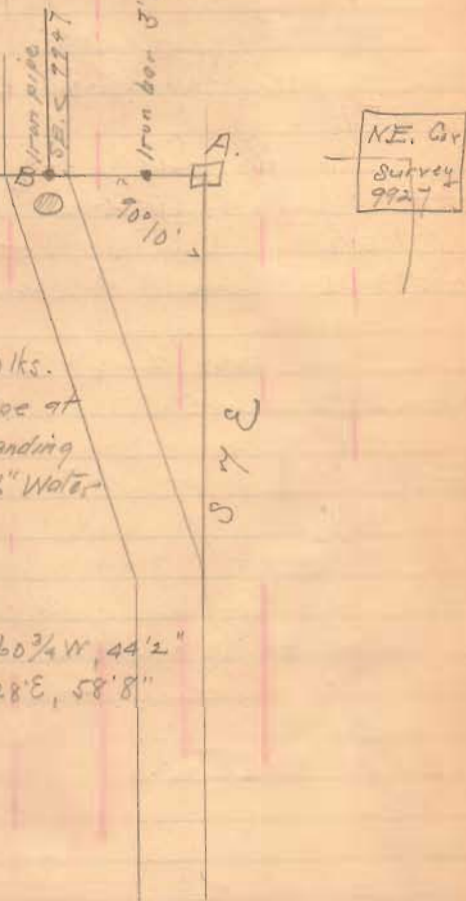 Iron pipe
S.E.S 9947
Iron bar 3'
A.
B
90° 10'
N.E. Cor
Survey
9927
lks.
at
anding
" Water
S 7 E
60 3/4 W, 44'2"
28'E, 58'8"